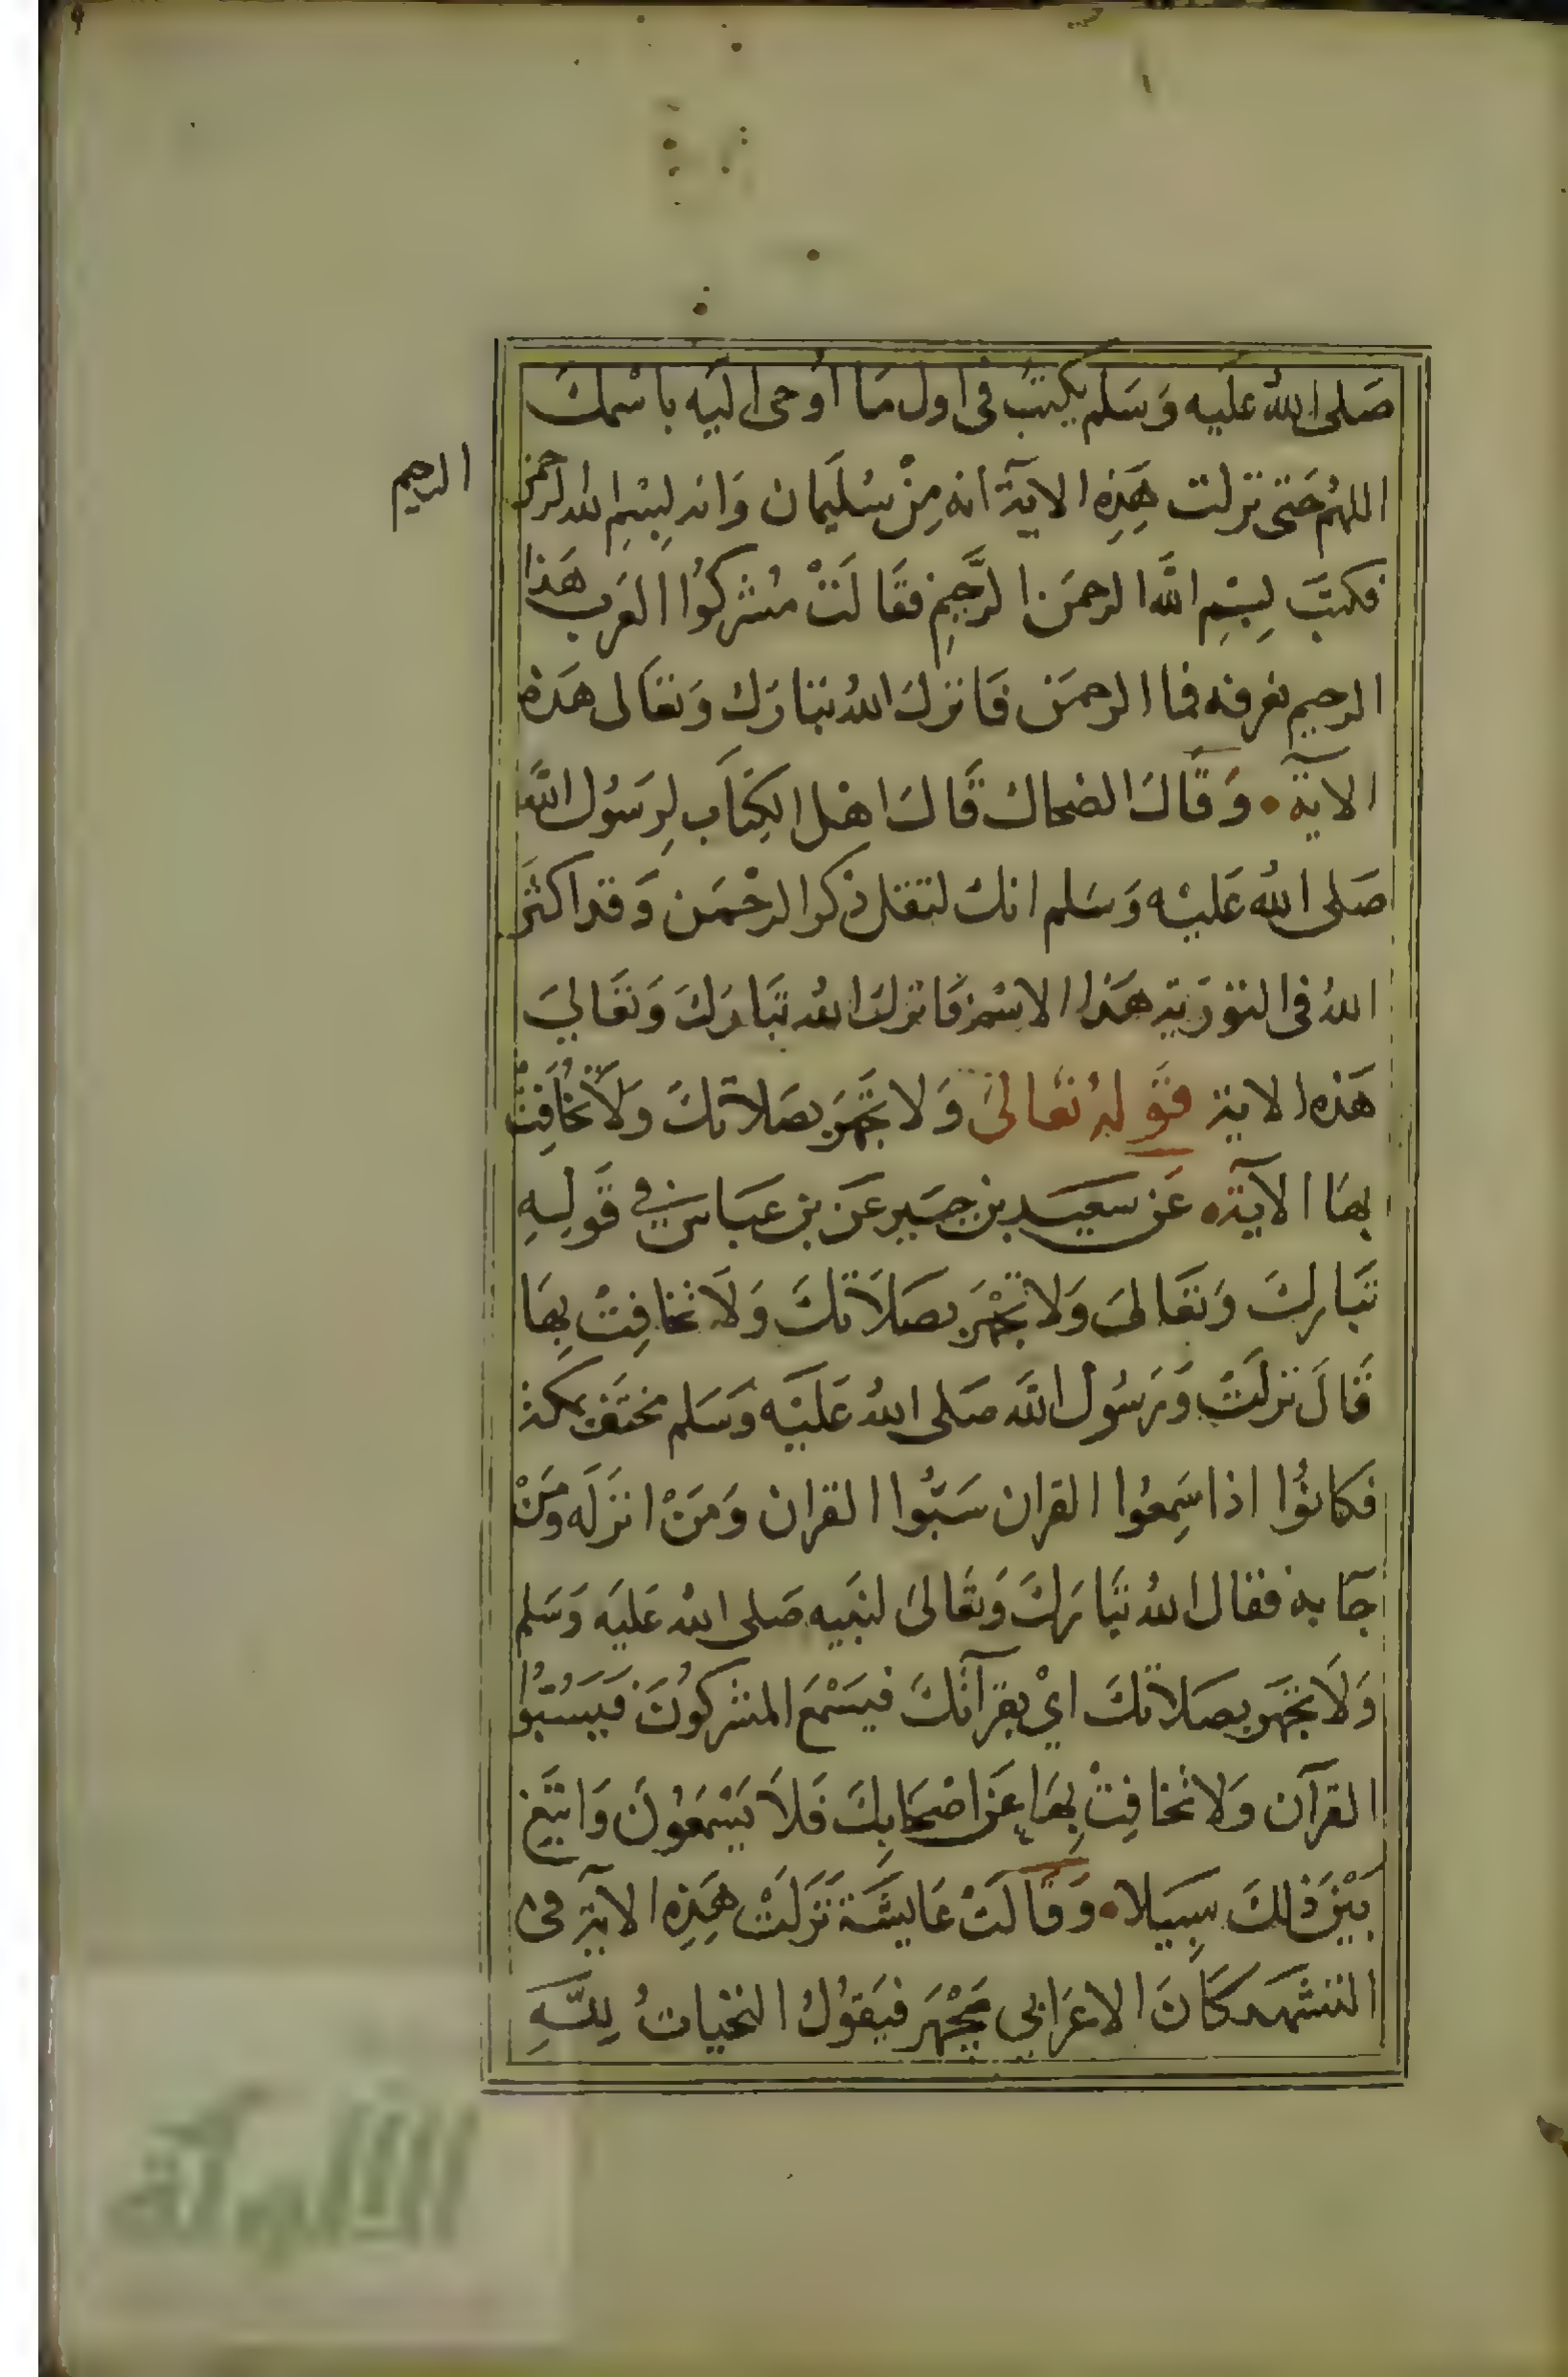 صَلى اللهُ عليَه وَسَلم يكتبُ فى اول مَا أوحى اليَه باسْمكَ
اللهُم حَتى نزلت هَذِه الاية انه مِنْ سُليَمان وَانه بِسْمِ الله الرحمن
الرحيم
فكتبَ بِسْمِ اللهَ الرحمَن الرَّحِيمِ فقَالَتْ مُشركوُا العَرب هَذا
الرحيم نعرفه فما الرحمَن فَانزلَ اللهُ تبَارَك وَتعَالى هَذه
الآية وَقَالَ الضحاك قَالَ اهْل الكِتَاب لِرَسُول اللهَ
صَلى اللهُ عَليْه وَسَلم انك لتقل ذكر الرحْمَن وَقد اكثَر
اللهُ فى التوْرَية هَذا الاسْم فَانزلَ اللهُ تبَارَكَ وَتعَاليَ
هَذه الاية قَولهُ تعَالىَ وَلا تجْهَر بصَلاتكَ وَلاَ تخَافِتْ
بهَا الآية عَن سَعيَد بن جبَير عَن بن عَبَاس في قَولِهِ
تبَارك وَتعَالىَ وَلا تجْهَر بصَلاَتكَ وَلاَ تخافِتْ بِهَا
قَالَ نزلَتْ وَرَسُول اللهَ صَلى اللهُ عَليْه وَسَلم مختَف بمكة
فكانوُا اذا سَمِعوُا القران سَبُّوا القران وَمَنْ انزَلَه وَمَنْ
جآ به فقال اللهُ تبَارَكَ وَتعَالىَ لنبَيه صَلى الله عَليَه وَسَلم
وَلاَ تجْهَر بصَلاتكَ ايْ بقرآنكَ فيسَمْعَ المشركوُنَ فيَسُبُّوا
القرآن وَلا تخافِتْ بِهَا عَن اصْحَابِكَ فَلاَ يَسْمَعُونَ وَابْتَغ
بَيْنَ ذلكَ سَبِيَلا وَقَالَتْ عَايشَة نَزَلَتْ هَذِه الآية فى
التشهد كَانَ الاعْرَابي يَجْهَر فيَقوُل التحيَاتُ لِلَّهِ